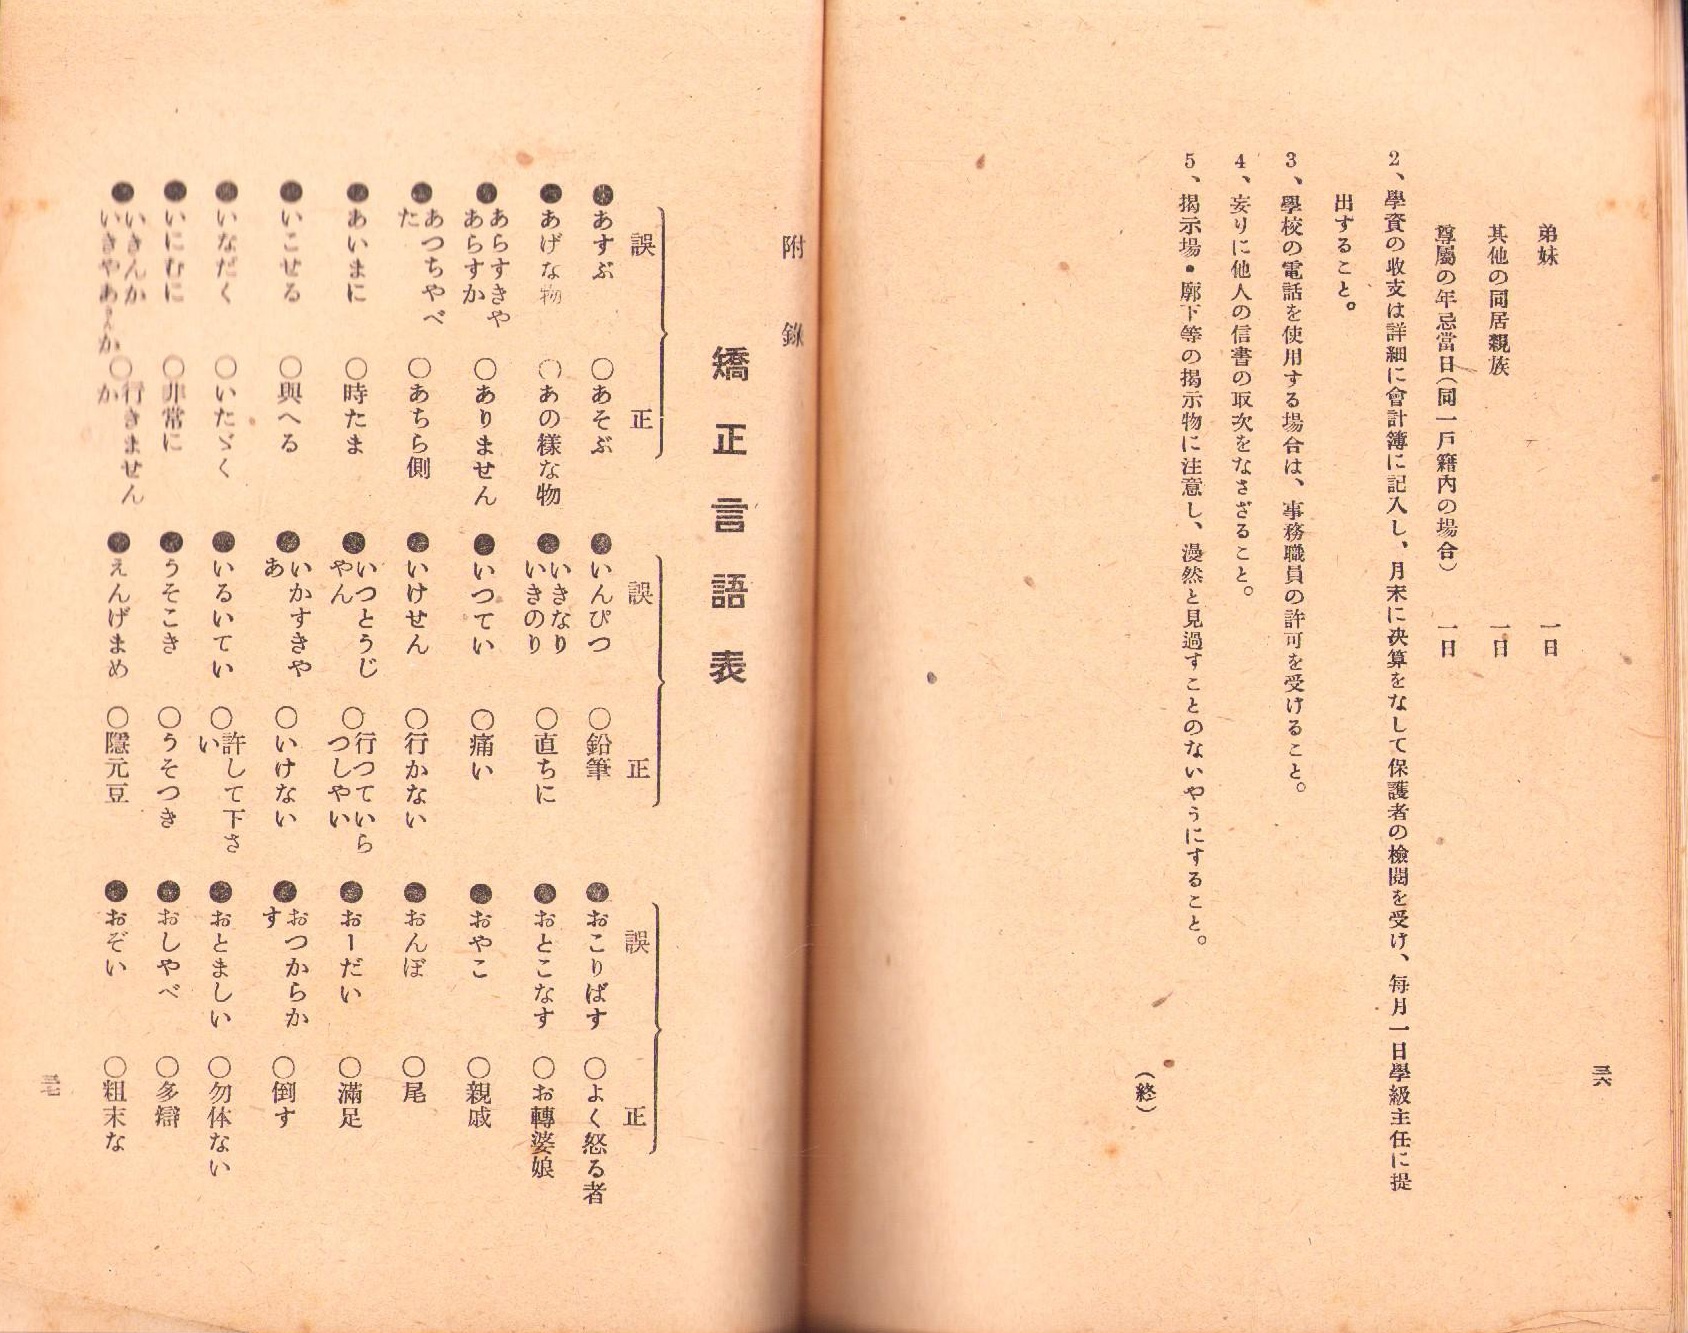 弟妹　一日
其他の同居親族　一日
尊屬の年忌當日（同一戸籍內の場合）　一日
2、學資の收支は詳細に會計簿に記入し、月末に決算をなして保護者の檢閱を受け、每月一日學級主任に提
出すること。
3、學校の電話を使用する場合は、事務職員の許可を受けること。
4、妄りに他人の信書の取次をなさざること。
5、揭示場・廓下等の揭示物に注意し、漫然と見過すことのないやうにすること。
（終）
三六
附錄
矯正言語表
誤　正
●あすぶ　○あそぶ
●あげな物　○あの樣な物
●あらすきや
あらすか　○ありません
●あつちやべ
た　○あちら側
●あいまに　○時たま
●いこせる　○與へる
●いなだく　○いたゞく
●いにむに　○非常に
●いきんか
いきやあんか　○行きません
か
誤　正
●いんぴつ　○鉛筆
●いきなり
いきのり　○直ちに
●いつてい　○痛い
●いけせん　○行かない
●いつとうじ
やん　○行つていら
つしやい
●いかすきや
あ　○いけない
●いるいてい　○許して下さ
い
●うそこき　○うそつき
●えんげまめ　○隱元豆
誤　正
●おこりばす　○よく怒る者
●おとこなす　○お轉婆娘
●おやこ　○親戚
●おんぼ　○尾
●おーだい　○滿足
●おつからか
す　○倒す
●おとましい　○勿体ない
●おしやべ　○多辯
●おぞい　○粗末な
三七